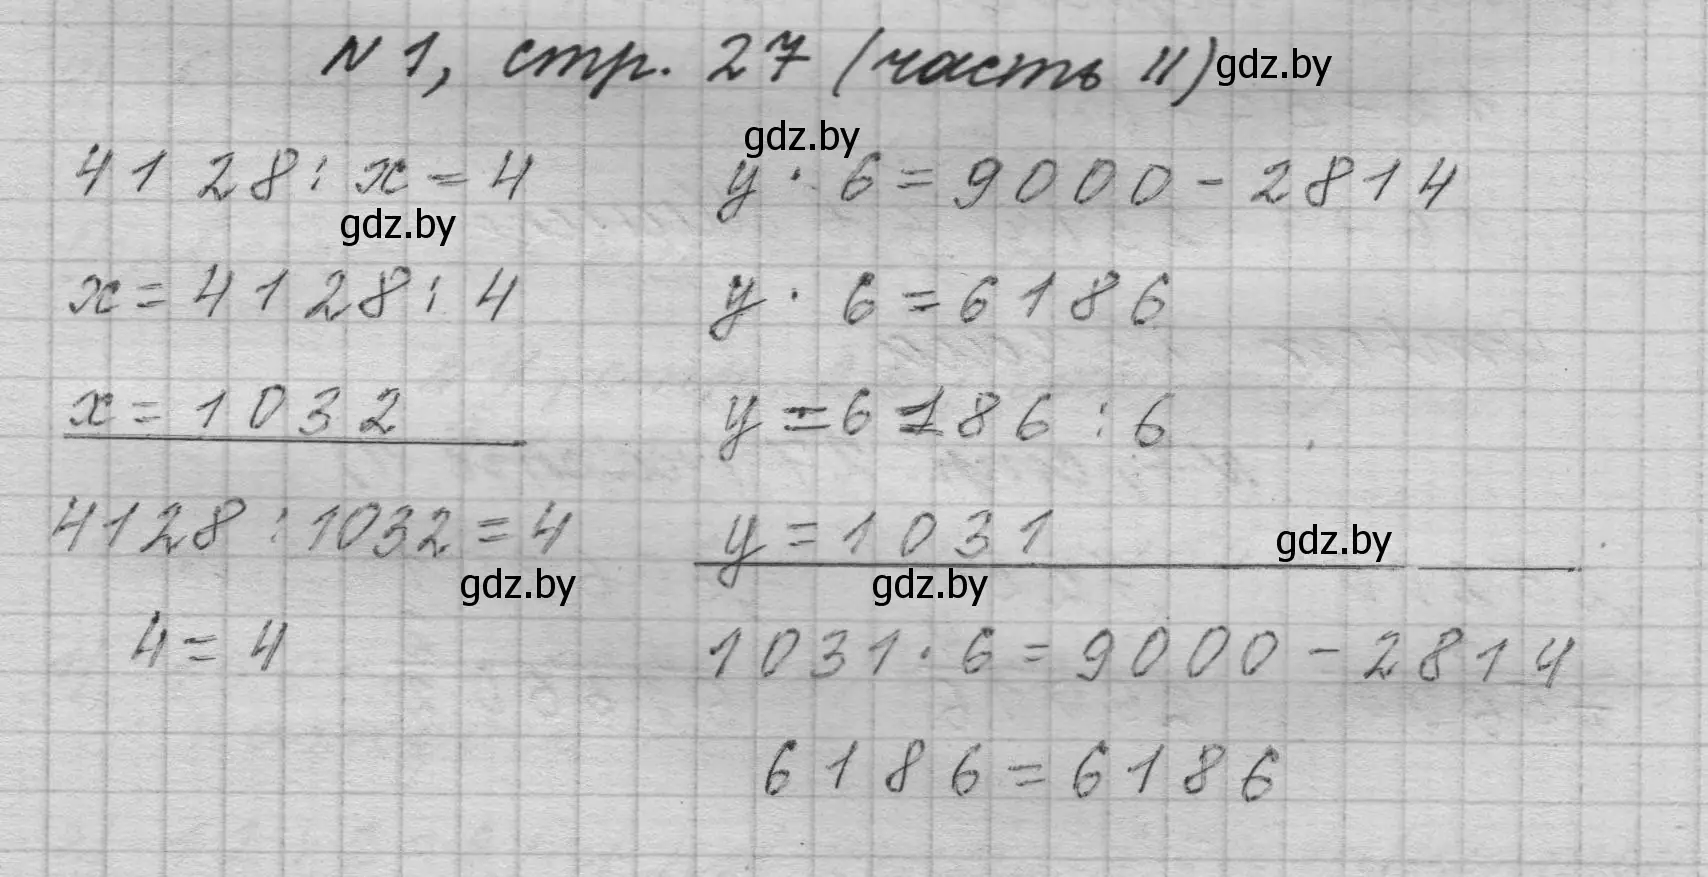 N 1, стр. 27 (часть II) gdz.by
gdz.by
4128 : x = 4
gdz.by
x = 4128 : 4
x = 1032
4128 : 1032 = 4
gdz.by
4 = 4
y · 6 = 9000 - 2814
y · 6 = 6186
y = 6186 : 6
y = 1031
gdz.by
gdz.by
1031 · 6 = 9000 - 2814
6186 = 6186